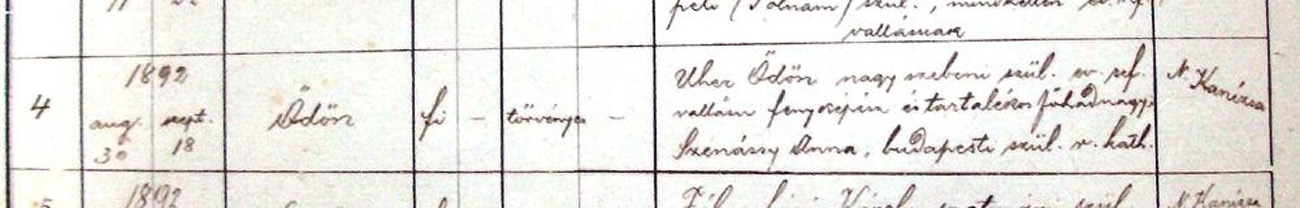 vallásuak
4
1892
aug. sept.
30 18
Ödön
fi –
törvényes –
Uher Ödön nagyszebeni szül. ev. ref.
vallásu fényképész és tartalékos főhadnagy,
Szenássy Anna, budapesti szül. r. kath.
N. Kanizsa
5
1892
N. Kanizsa